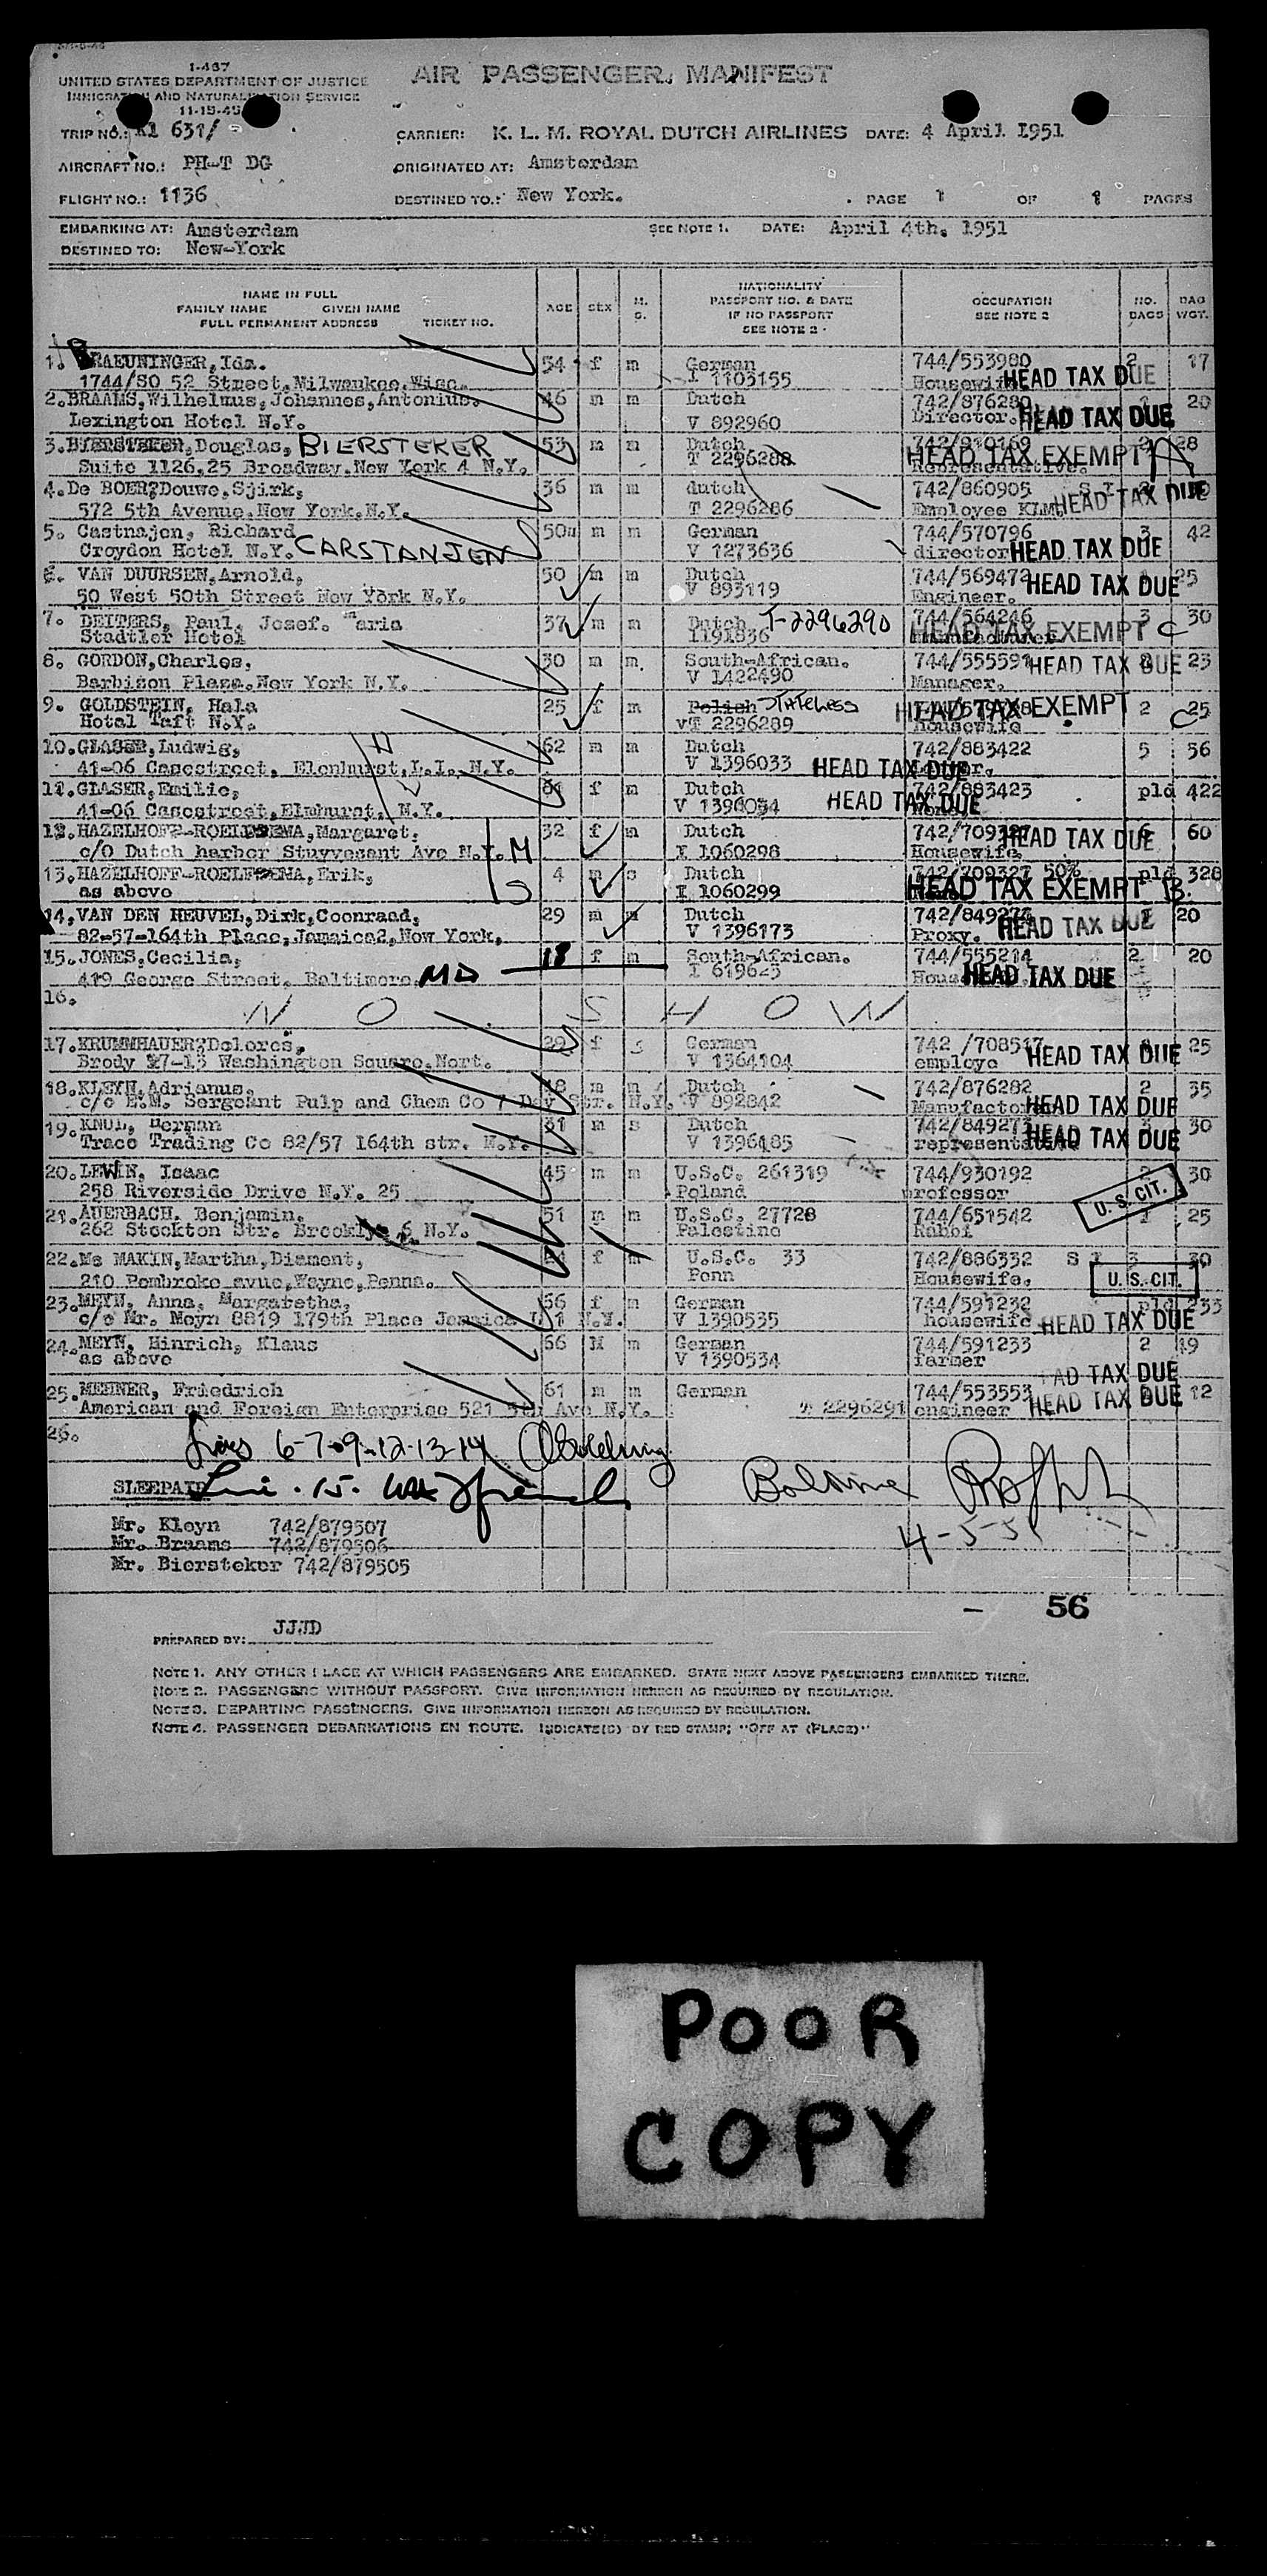 1-467
UNITED STATES DEPARTMENT OF JUSTICE
IMMIGRATION AND NATURALIZATION SERVICE
11-15-45
AIR PASSENGER MANIFEST
TRIP NO.: Kl 631/
CARRIER: K. L. M. ROYAL DUTCH AIRLINES DATE: 4 April 1951
AIRCRAFT NO.: PH-T DG
ORIGINATED AT: Amsterdam
FLIGHT NO.: 1136
DESTINED TO.: New York.
PAGE 1 OF 8 PAGES
EMBARKING AT: Amsterdam
SEE NOTE 1. DATE: April 4th. 1951
DESTINED TO: New-York
NAME IN FULL
FAMILY NAME GIVEN NAME
FULL PERMANENT ADDRESS TICKET NO.
AGE SEX M. S.
NATIONALITY
PASSPORT NO. & DATE
IF NO PASSPORT
SEE NOTE 2
OCCUPATION
SEE NOTE 2
NO. BAGS
BAG WGT.
1. BRAEUNINGER,Ida. 54 f m German 744/553980 2 17
1744/SO 52 Street,Milwaukee,Wisc. I 1103155 Housewife HEAD TAX DUE
2.BRAAMS,Wilhelmus,Johannes,Antonius. 46 m m Dutch 742/876280 20
Lexington Hotel N.Y. V 892960 Director. HEAD TAX DUE
3.BIERSTEKER,Douglas, BIERSTEKER 53 m m Dutch 742/910169 2 28
Suite 1126,25 Broadway,New York 4 N.Y. T 2296288 Representative. HEAD TAX EXEMPT A
4.De BOER?Douwe,Sjirk, 36 m m dutch 742/860905 S I
572 5th Avenue,New York,N.Y. T 2296286 Employee KLM. HEAD TAX DUE
5. Castnajen, Richard 50 m m German 744/570796 3 42
Croydon Hotel N.Y. CARSTANJEN V 1273636 director HEAD TAX DUE
6. VAN DUURSEN,Arnold, 50 m m Dutch 744/569472 25
50 West 50th Street New York N.Y. V 893119 Engineer. HEAD TAX DUE
7. DEITERS, Paul, Josef. Maria 37 m m Dutch T-2296290 744/564246 3 30
Stadtler Hotel 1191836 HEAD TAX EXEMPT C
8. GORDON,Charles, 30 m m. South-African. 744/555591 23
Barbison Plaza,New York N.Y. V 1422490 Manager. HEAD TAX DUE
9. GOLDSTEIN, Hala 25 f m Polish STATELESS HEAD TAX EXEMPT 2 25
Hotel Taft N.Y. vT 2296289 housewife C
10.GLASER,Ludwig, 62 m m Dutch 742/883422 5 56
41-06 Casestreet, Elenhurst,L.I. N.Y. V 1396033 HEAD TAX DUE
11.GLASER,Emilie, 61 f m Dutch 742/883423 pld 422
41-06 Casestreet,Elmhurst, N.Y. V 1396034 HEAD TAX DUE
12.HAZELHOFF-ROELFSEMA,Margaret, 32 f m Dutch 742/709327 6 60
c/o Dutch harbor Stuyvesant Ave N.Y. M I 1060298 Housewife. HEAD TAX DUE
13.HAZELHOFF-ROELFSEMA,Erik, 4 m s Dutch 742/709327 50% pld 328
as above S I 1060299 HEAD TAX EXEMPT B.
14.VAN DEN HEUVEL,Dirk,Coenraad, 29 m m Dutch 742/849274 1 20
82-57-164th Place,Jamaica2,New York, V 1396173 Proxy. HEAD TAX DUE
15.JONES,Cecilia, 18 f m South-African. 744/555214 2 20
419 George Street, Baltimore, MD I 619625 HEAD TAX DUE
16.
NO SHOW
17.KRUMMHAUER?Dolores, 29 f s German 742 /708517 25
Brody 27-13 Washington Square,Nort. V 1364104 employe HEAD TAX DUE
18.KLEYN,Adrianus. 48 m m Dutch 742/876282 2 35
c/o E.M. Sergeant Pulp and Chem Co 7 Dey Str. N.Y. V 892842 Manufactorer HEAD TAX DUE
19. KNOL, Herman 31 m s Dutch 742/849273 30
Trace Trading Co 82/57 164th str. N.Y. V 1396485 representative HEAD TAX DUE
20.LEWIN, Isaac 45 m m U.S.C. 261319 744/930192 2 30
258 Riverside Drive N.Y. 25 Poland professor U. S. CIT.
21.AUERBACH, Benjamin, 51 m m U.S.C. 27728 744/651542 1 25
262 Stockton Str. Brooklyn 6 N.Y. Palestine Rabbi
22.Mc MAKIN,Martha,Diament, 24 f m U.S.C. 33 742/886332 S I 3 30
210 Pembroke avue,Wayne,Penna. Penn Housewife, U. S. CIT.
23.MEYN, Anna, Margaretha, 56 f m German 744/591232 pld 233
c/o Mr. Meyn 8819 179th Place Jamaica L I N.Y. V 1390535 housewife HEAD TAX DUE
24.MEYN, Hinrich, Klaus 66 M m German 744/591233 2 49
as above V 1390534 farmer HEAD TAX DUE
25.MEHNER, Friedrich 61 m m German 744/553553 12
American and Foreign Enterprise 521 5th Ave N.Y. T 2296291 engineer HEAD TAX DUE
26.
Lines 6-7-9-12-13-14
SLEEPAID
4-5-51
Mr. Kleyn 742/879507
Mr. Braams 742/879506
Mr. Biersteker 742/879505
- 56
PREPARED BY: JJJD
NOTE 1. ANY OTHER PLACE AT WHICH PASSENGERS ARE EMBARKED. STATE NEXT ABOVE PASSENGERS EMBARKED THERE.
NOTE 2. PASSENGERS WITHOUT PASSPORT. GIVE INFORMATION HEREON AS REQUIRED BY REGULATION.
NOTE 3. DEPARTING PASSENGERS. GIVE INFORMATION HEREON AS REQUIRED BY REGULATION.
NOTE 4. PASSENGER DEBARKATIONS EN ROUTE. INDICATE(D) BY RED STAMP; "OFF AT (PLACE)"
POOR
COPY